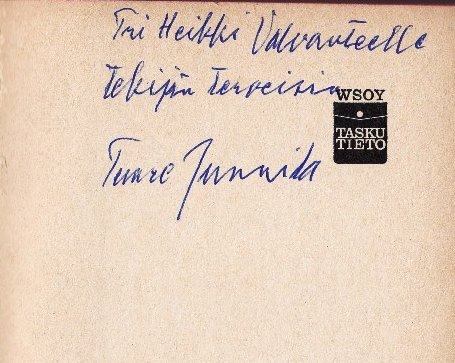 Tri Heikki Valvanteelle
tekijän terveisin
WSOY
TASKU
TIETO
Tuure Junnila